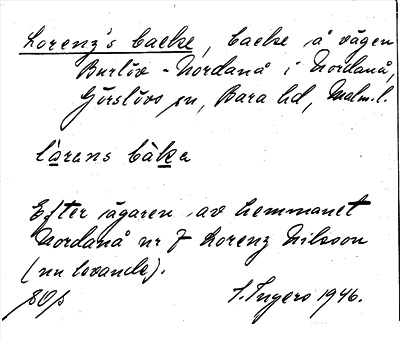 Lorenz's backe, backe å vägen
Burlöv - Nordanå i Nordanå,
Görslövs sn, Bara hd, Malm. l.
lårens bàka
Efter ägaren av hemmanet
Nordanå nr 7 Lorenz Nilsson
(nu levande).
I. Ingers 1946.